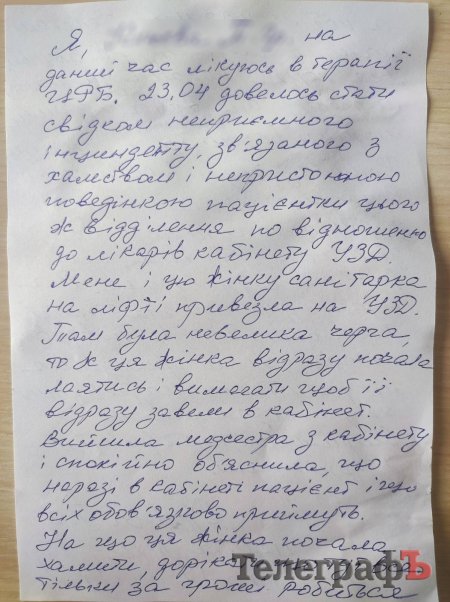 Я, на
даний час лікуюсь в терапії
ЦРБ. 23.04 довелось стати
свідком неприємного
інциндету, зв'язаного з
хамством і непристойною
поведінкою пацієнтки цього
ж відділення по відношенню
до лікарів кабінету УЗД.
Мене і цю жінку санітарка
на ліфті привезла на УЗД.
Там була невелика черга,
то ж ця жінка відразу почала
лаятись і вимагати щоб її
відразу завели в кабінет.
Вийшла медсестра з кабінету
і спокійно об'яснила, що
наразі в кабінеті пацієнт і що
всіх обов'язково приймуть.
На що ця жінка почала
хамити, що
тільки за гроші робиться
ТелеграфЪ